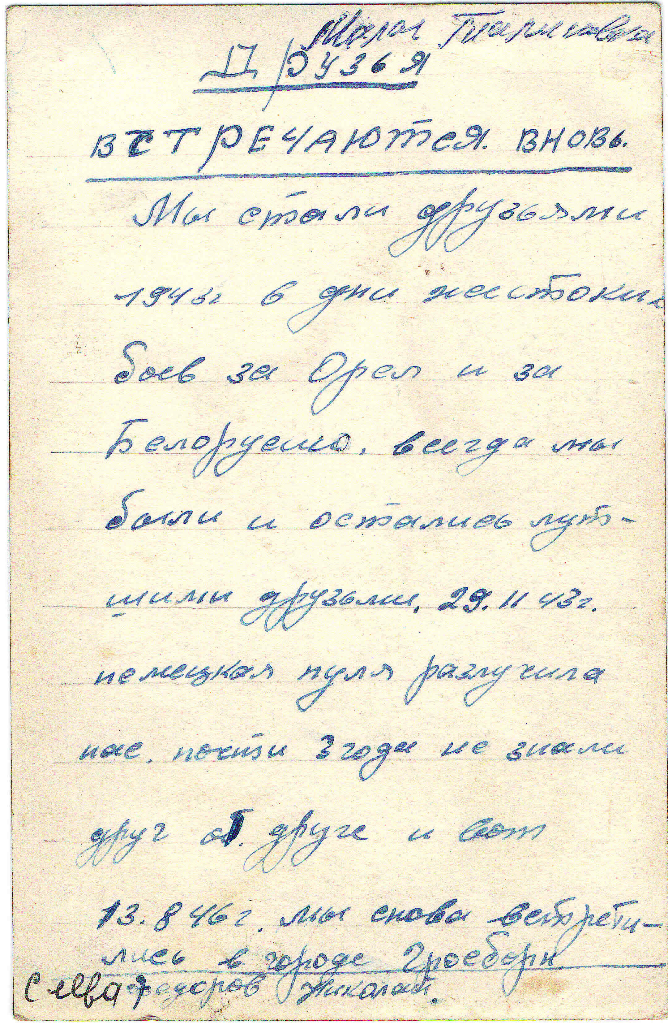 Малая
Друзья
встречаются. вновь.
Мы стали друзьями
1943г в дни жестоких
боев за Орел и за
Белорусию. всегда мы
были и остались лут-
шими друзьми. 29.11 43г.
немецкая пуля разлучила
нас. почти 3 года не знали
друг от. друге и вот
13.8 46г. мы снова встрети-
лись в городе Гросборн
Слева Федоров Николай.